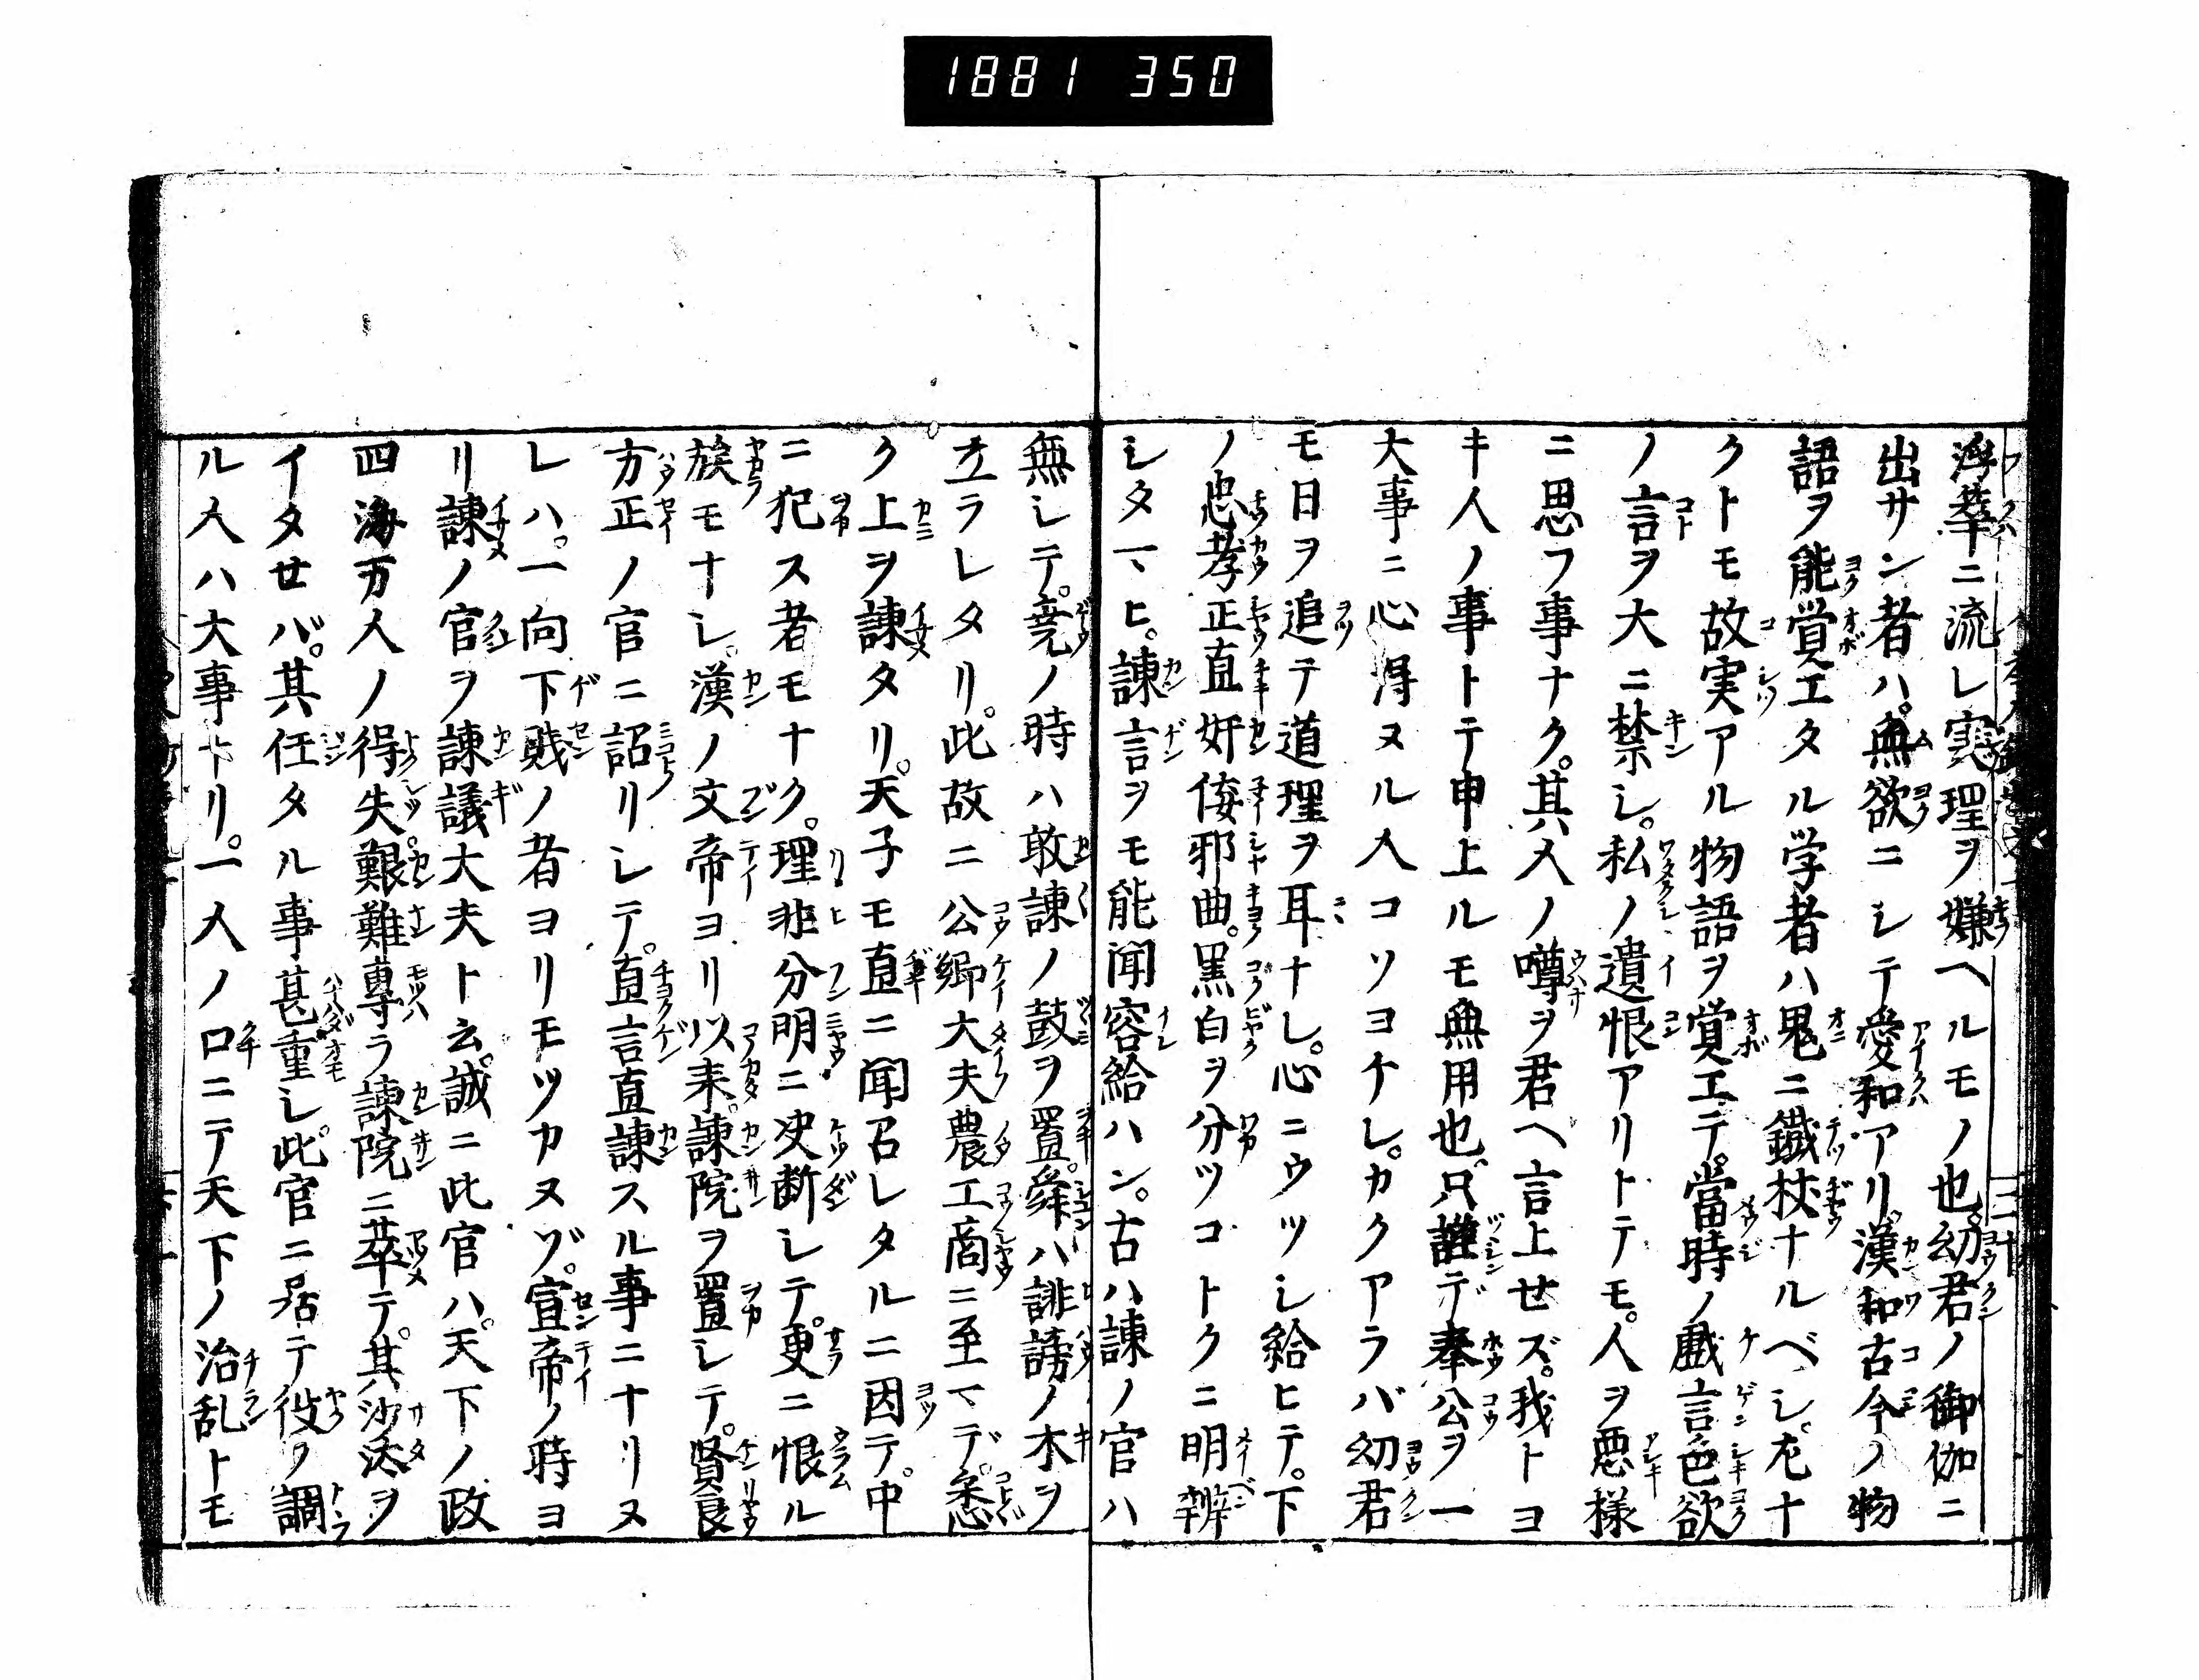 1881 350
浮華ニ流レ実理ヲ嫌ヘルモノ也。幼君ノ御伽ニ
出サン者ハ。無欲ニシテ愛和アリ。漢和古今ノ物
語ヲ能覚エタル学者ハ鬼ニ鐵杖ナルベシ。尤ナ
クトモ故実アル物語ヲ覚エテ。當時ノ戯言色欲
ノ言ヲ大ニ禁シ。私ノ遺恨アリトテモ。人ヲ悪様
ニ思フ事ナク。其人ノ噂ヲ君ヘ言上せズ。我トヨ
キ人ノ事トテ申上ルモ無用也。只謹デ奉公ヲ一
大事ニ心得ヌル人コソヨケレ。カクアラバ幼君
モ日ヲ追テ道理ヲ耳ナレ。心ニウツシ給ヒテ。下
ノ忠孝正直奸倭邪曲。黒白ヲ分ツコトクニ明辨
シタマヒ。諌言ヲモ能聞容給ハン。古ハ諌ノ官ハ
無シテ。尭ノ時ハ敢諌ノ鼓ヲ置。舜ハ誹謗ノ木ヲ
立ラレタリ。此故ニ公卿大夫農工商ニ至マデ。悉
ク上ヲ諌タリ。天子モ直ニ聞召レタルニ因テ。中
ニ犯ス者モナク。理非分明ニ决断シテ。更ニ恨ル
族モナシ。漢ノ文帝ヨリ以来。諌院ヲ置レテ。賢良
方正ノ官ニ詔リシテ。直言直諌スル事ニナリヌ
レハ。一向下賎ノ者ヨリモツカヌゾ。宣帝ノ時ヨ
リ諌ノ官ヲ諌議大夫ト云。誠ニ此官ハ。天下ノ政
四海万人ノ得失。艱難專ラ諌院ニ萃テ。其沙汰ヲ
イタせバ。其任タル事甚重シ。此官ニ居テ役ヲ調
ル人ハ大事ナリ。一人ノ口ニテ天下ノ治乱トモ